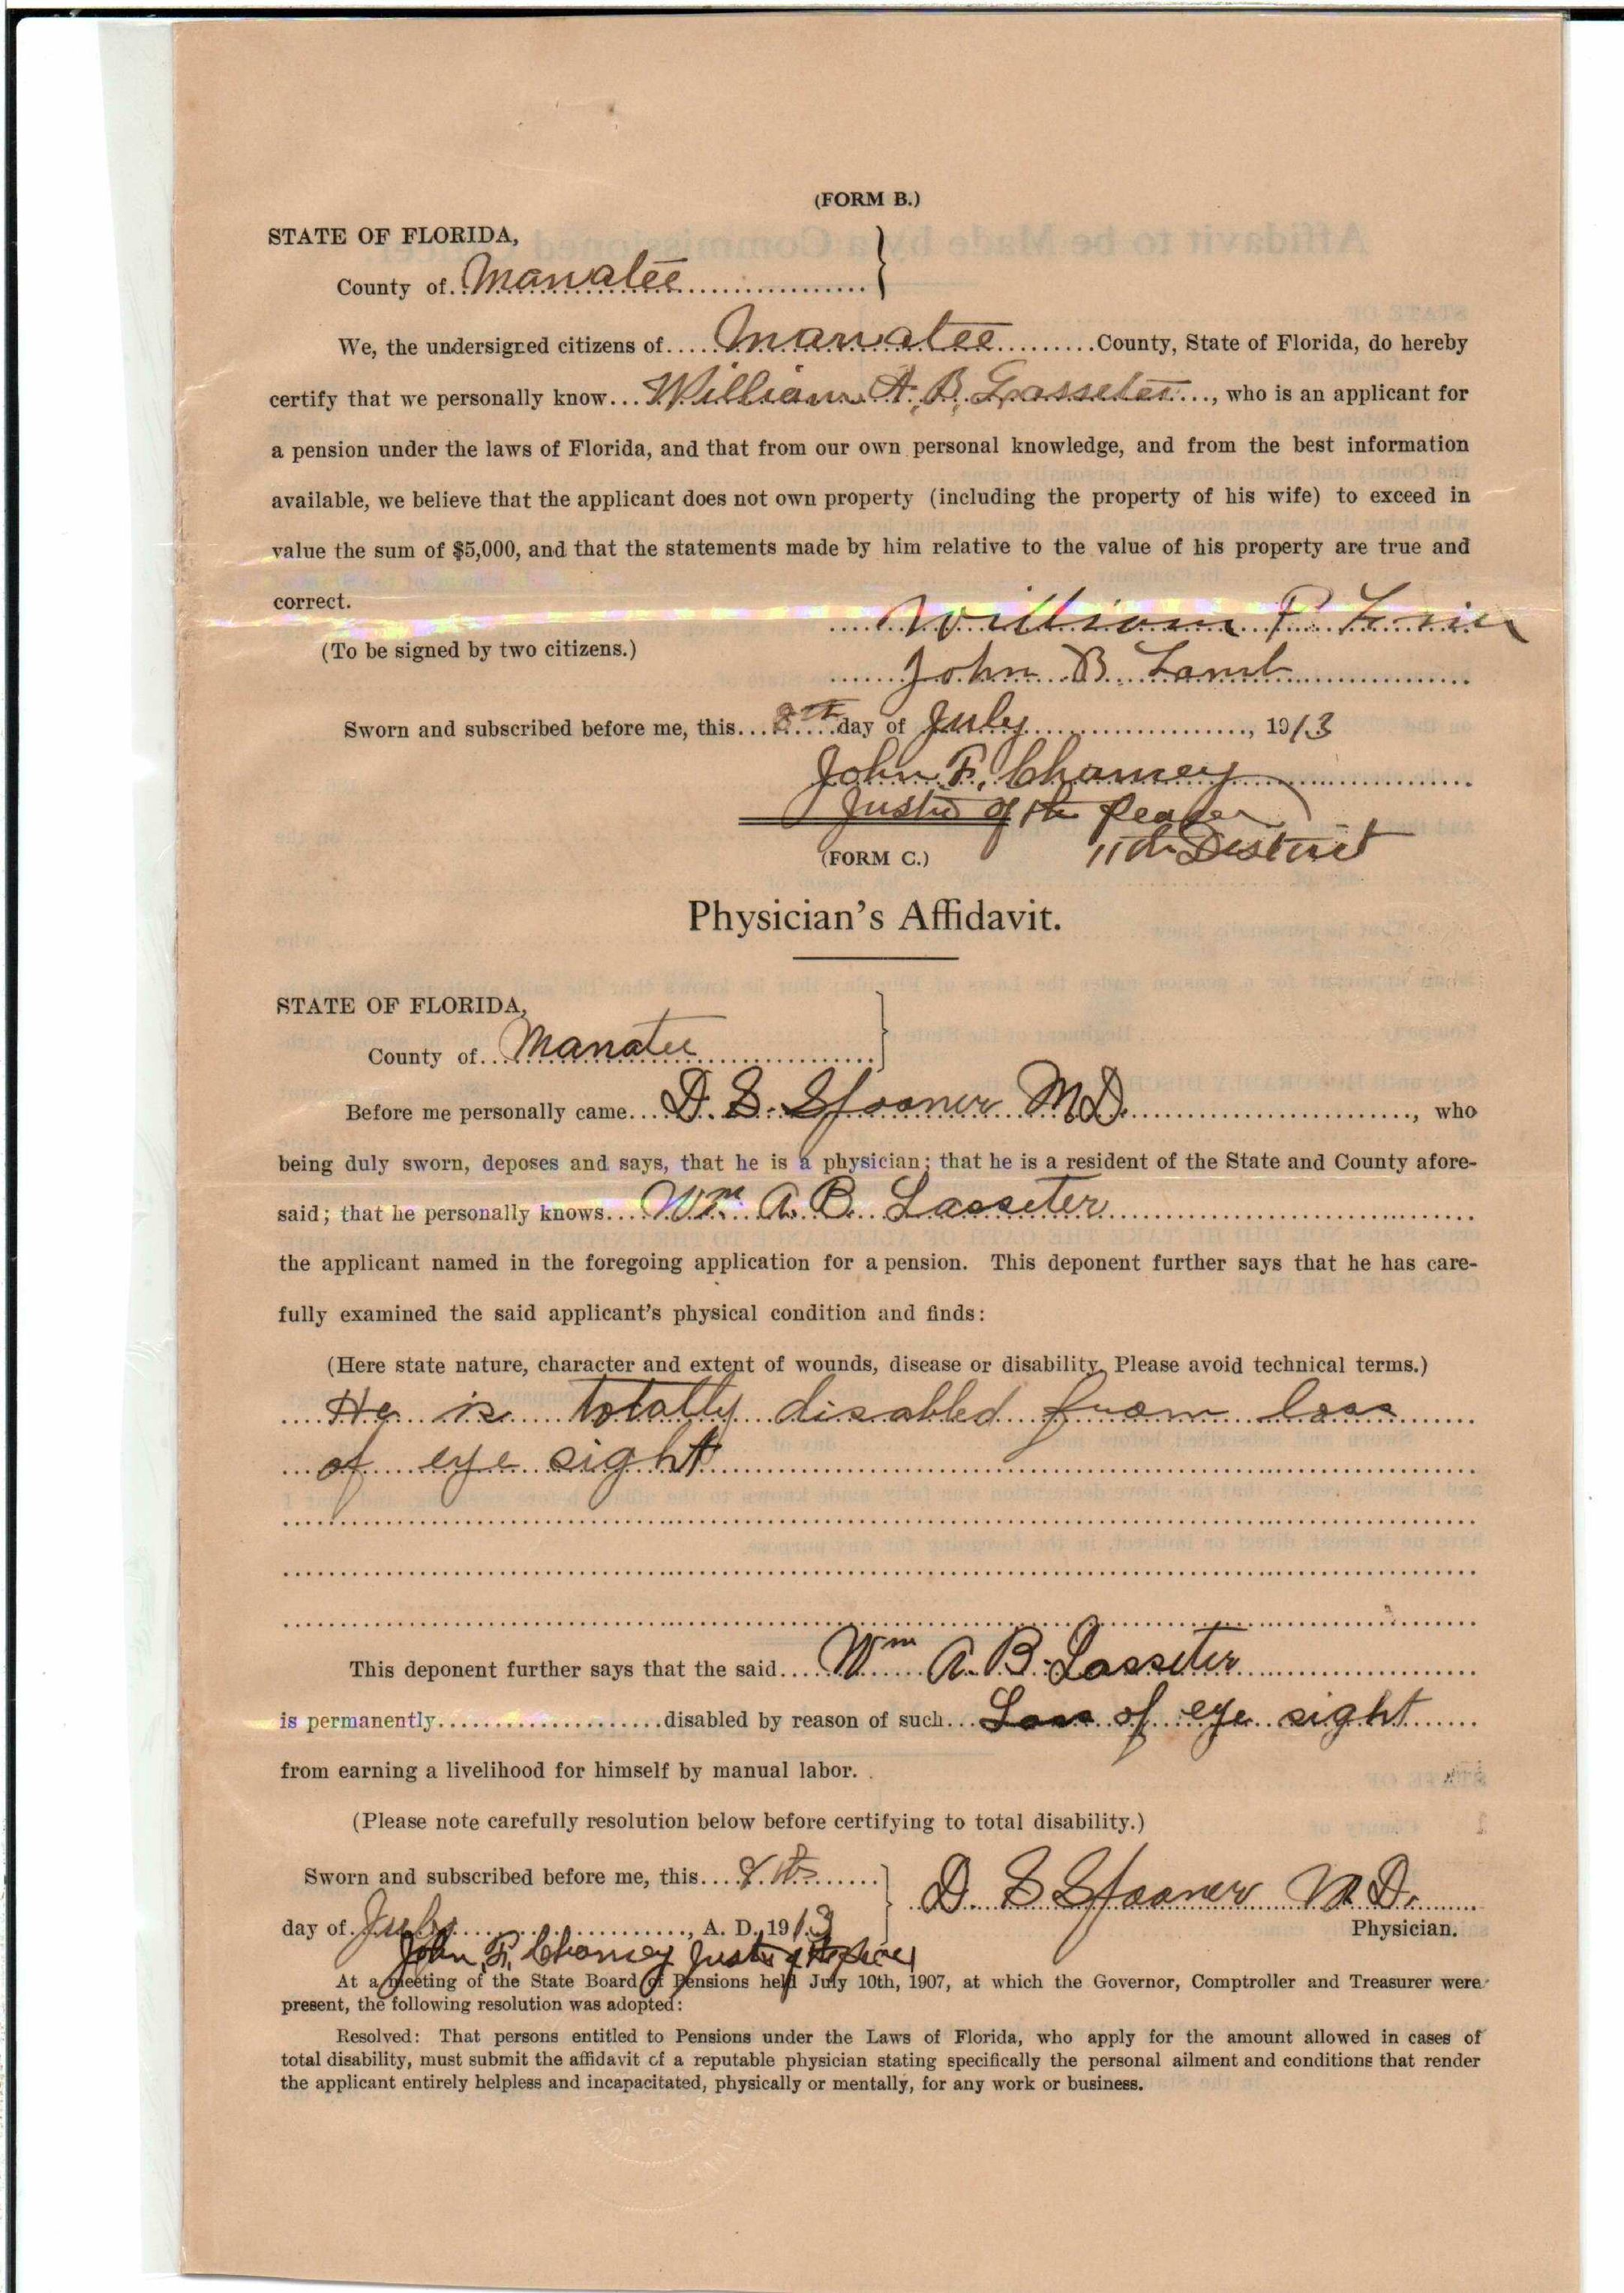 (FORM B.)
STATE OF FLORIDA,
County of Manatee
We, the undersigned citizens of Manatee County, State of Florida, do hereby
certify that we personally know William A. B. Lasseter, who is an applicant for
a pension under the laws of Florida, and that from our own personal knowledge, and from the best information
available, we believe that the applicant does not own property (including the property of his wife) to exceed in
value the sum of $5,000, and that the statements made by him relative to the value of his property are true and
correct.
William P.
(To be signed by two citizens.)
John B. Lamb
Sworn and subscribed before me, this 8th day of July, 1913
John F. Chamey
Justice of the Peace
11th District
(FORM C.)
Physician's Affidavit.
STATE OF FLORIDA,
County of Manatee
Before me personally came D. S. Spooner M D, who
being duly sworn, deposes and says, that he is a physician; that he is a resident of the State and County afore-
said; that he personally knows Wm A. B. Lasseter
the applicant named in the foregoing application for a pension. This deponent further says that he has care-
fully examined the said applicant's physical condition and finds:
(Here state nature, character and extent of wounds, disease or disability. Please avoid technical terms.)
He is totally disabled from loss
of eye sight
This deponent further says that the said Wm A. B. Lasseter
is permanently disabled by reason of such Loss of eye sight
from earning a livelihood for himself by manual labor.
(Please note carefully resolution below before certifying to total disability.)
Sworn and subscribed before me, this 8th
D. S Spooner M. D.
day of July, A. D. 1913
Physician.
John F. Chamey Justice of the peace
At a meeting of the State Board of Pensions held July 10th, 1907, at which the Governor, Comptroller and Treasurer were
present, the following resolution was adopted:
Resolved: That persons entitled to Pensions under the Laws of Florida, who apply for the amount allowed in cases of
total disability, must submit the affidavit of a reputable physician stating specifically the personal ailment and conditions that render
the applicant entirely helpless and incapacitated, physically or mentally, for any work or business.